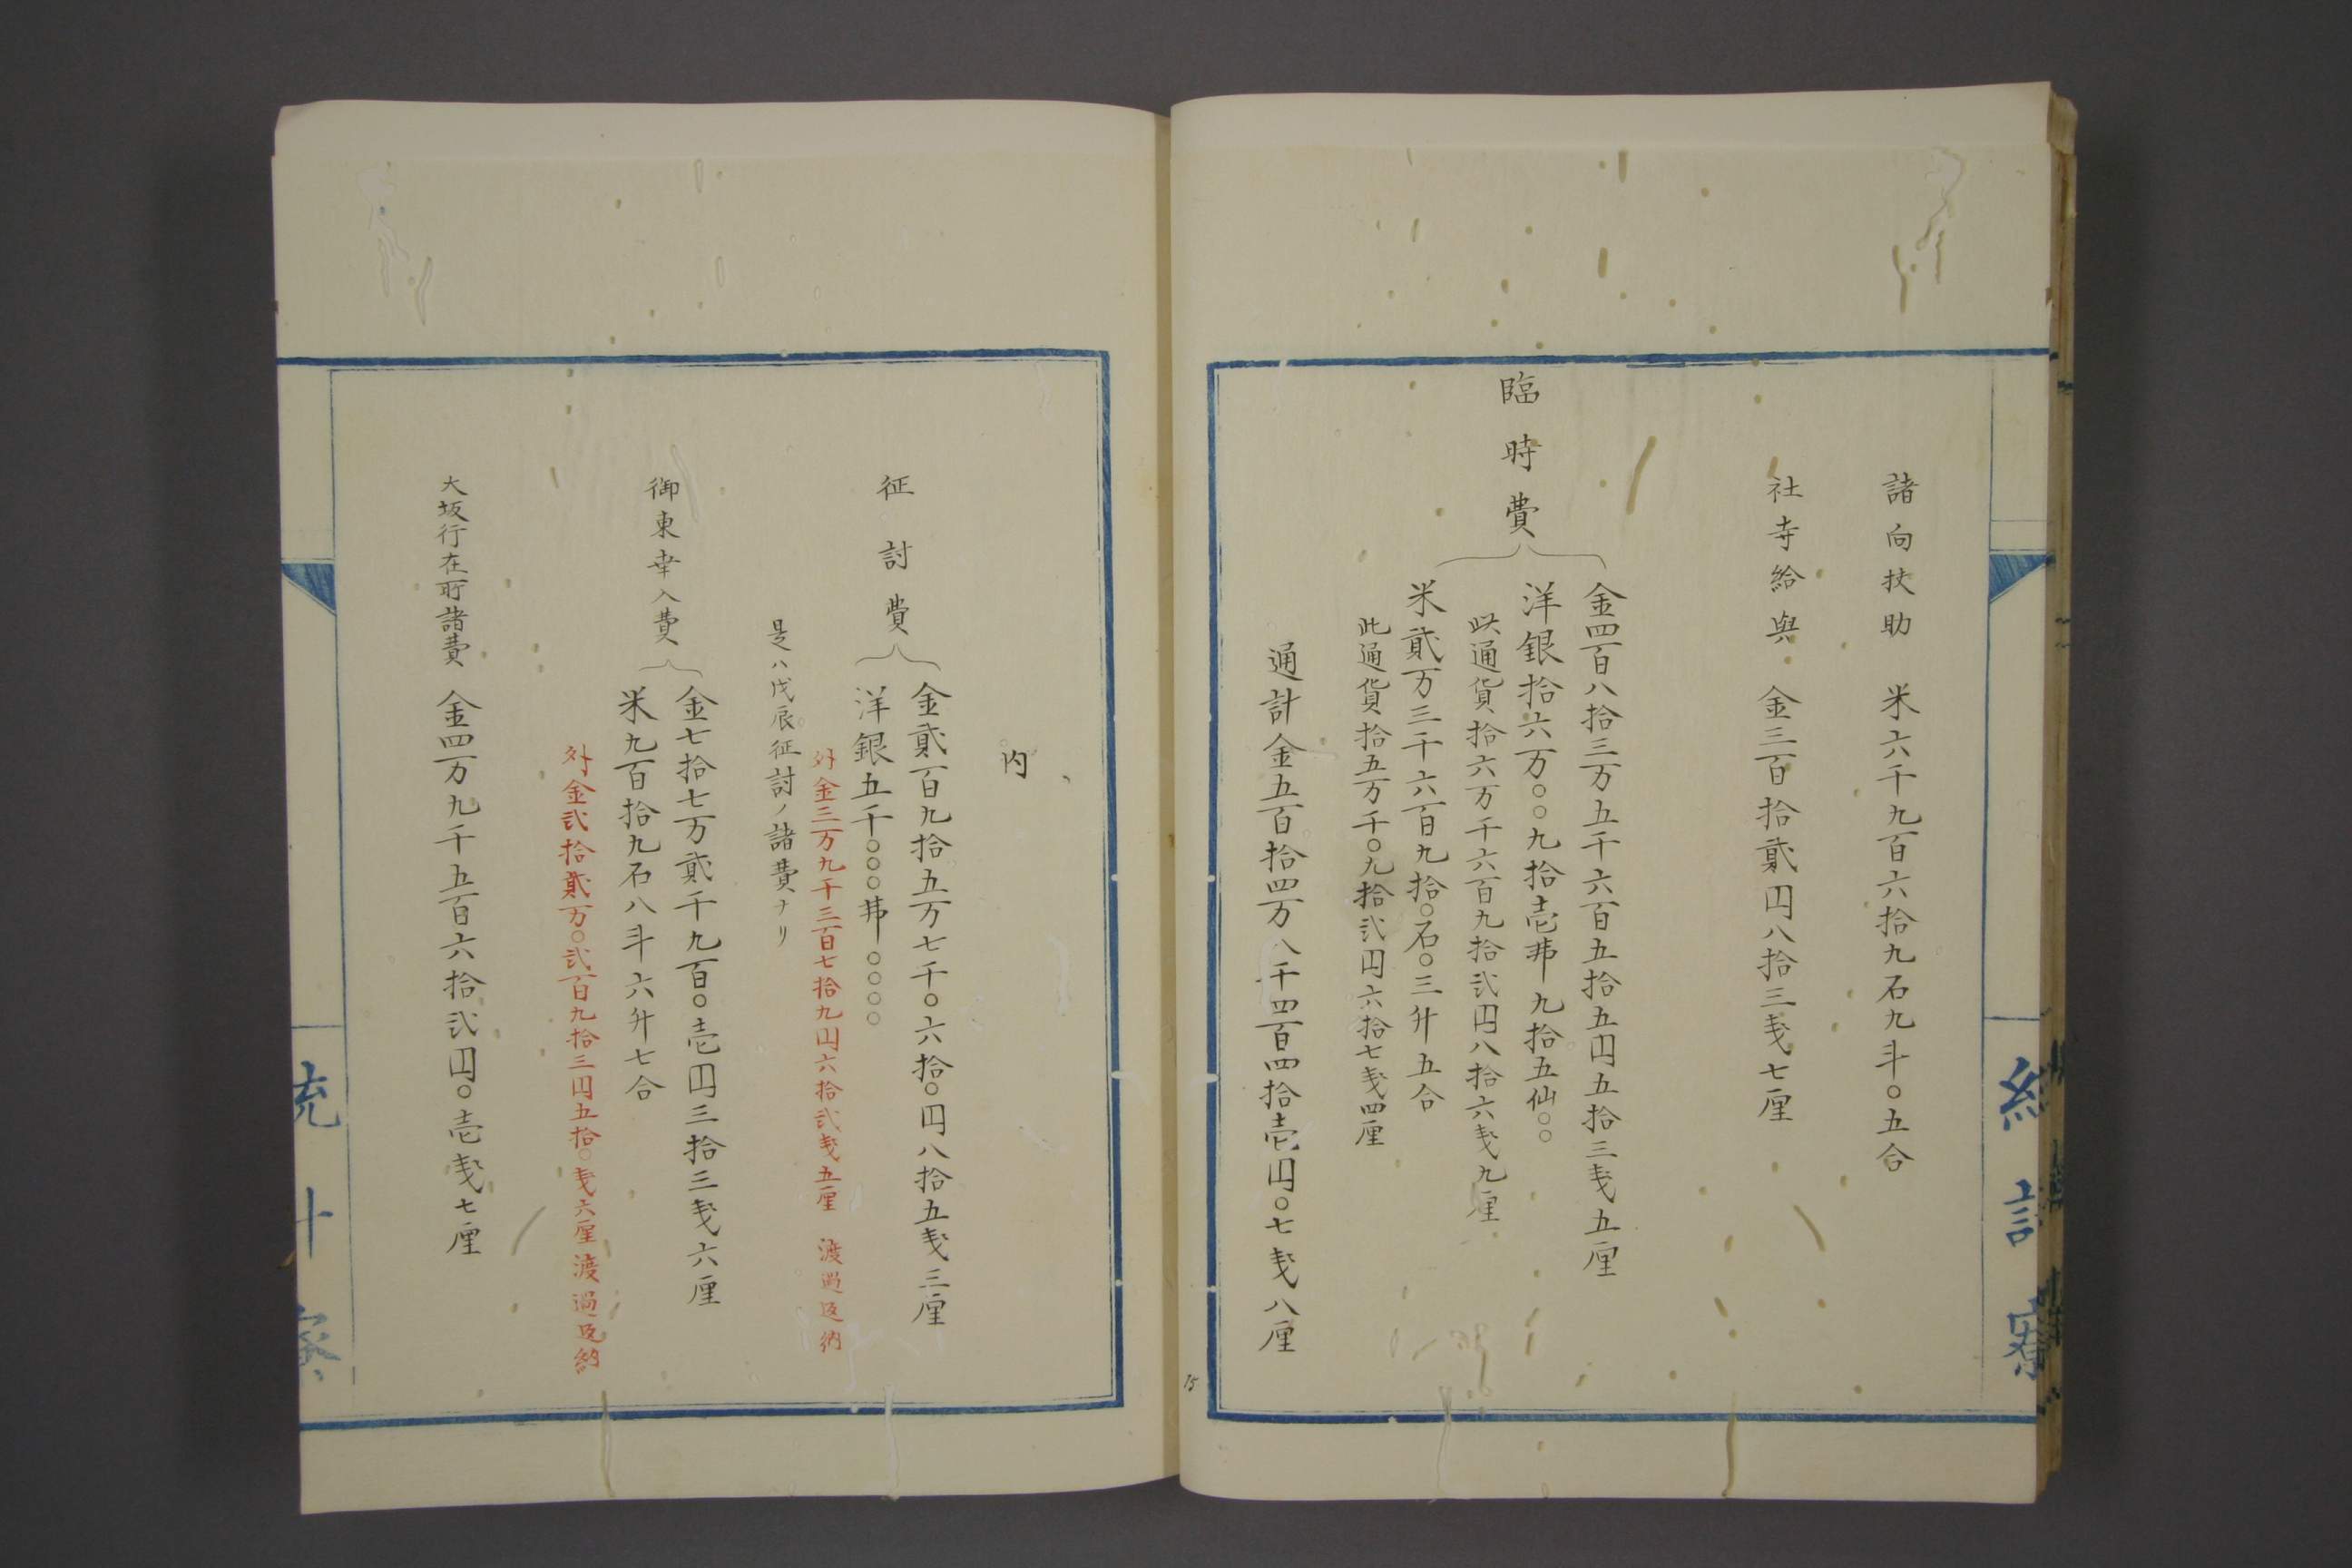 諸向扶助　米六千九百六拾九石九斗〇五合
社寺給與　金三百拾貳円八拾三戔七厘
臨時費
金四百八拾三万五千六百五拾五円五拾三戔五厘
洋銀拾六万〇〇九拾壱弗九拾五仙〇〇
此通貨拾六万千六百九拾弐円八拾六戔九厘
米貳万三千六百九拾〇石〇三升五合
此通貨拾五万千〇九拾弐円六拾七戔四厘
通計金五百拾四万八千四百四拾壱円〇七戔八厘
15
内
征討費
金貳百九拾五万七千〇六拾〇円八拾五戔三厘
洋銀五千〇〇〇弗〇〇〇〇
外金三万九千三百七拾九円六拾弐戔五厘　渡過返納
是ハ戊辰征討ノ諸費ナリ
御東幸入費
金七拾七万貳千九百〇壱円三拾三戔六厘
米九百拾九石八斗六升七合
外金弐拾貳万〇弐百九拾三円五拾〇戔六厘　渡過返納
大坂行在所諸費　金四万九千五百六拾弐円〇壱戔七厘